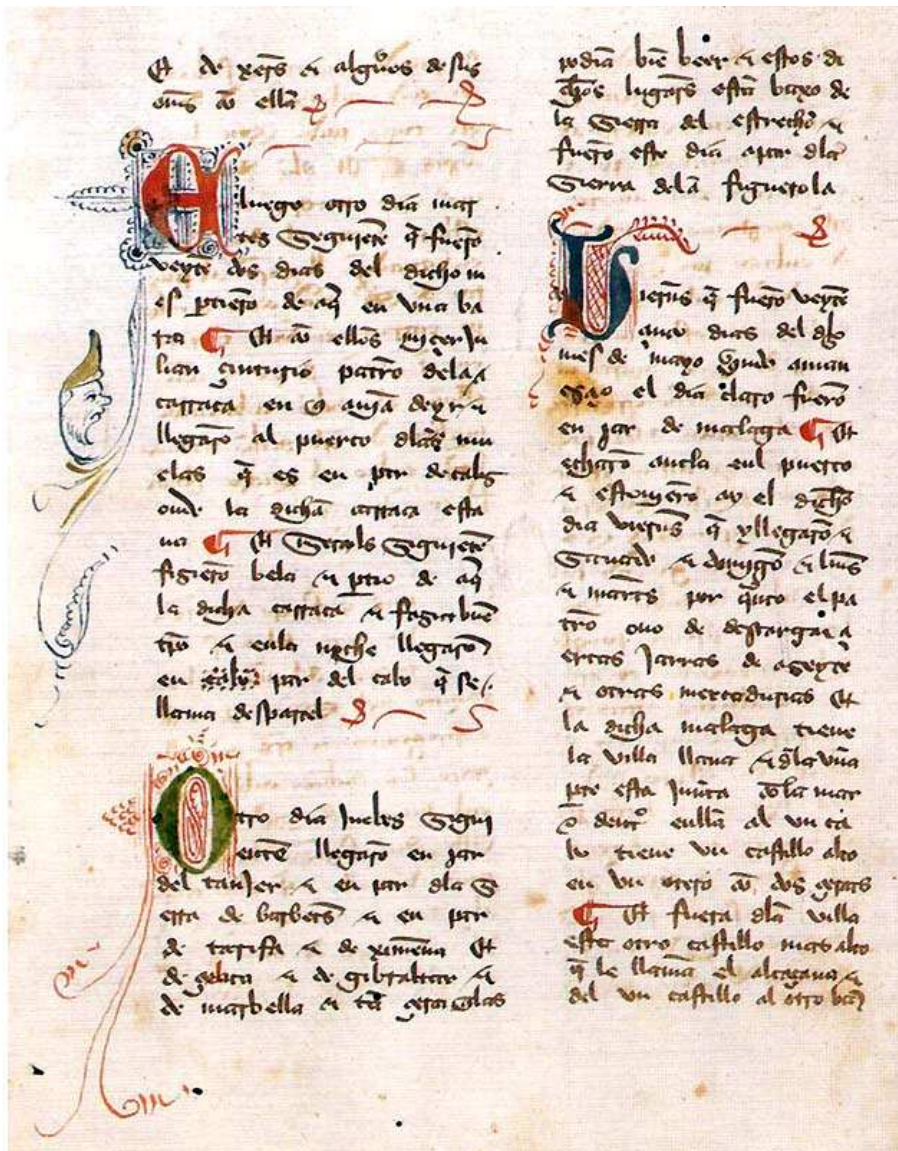 Et de xers & algũos de sus
oms cõ ellã
E luego otro dia mar
tes Seguiẽte q̃ fuerõ
veynte dos dias del dicho m
es ptierõ de aq̃ en vna ba
rca Et cõ ellos miçer Ju
lian çenturio patrõ de la
carraca en q̃ auiã de yr &
llegarõ al puerto dlas mu
elas q̃ es en par de calis
onde la dicha carraca esta
ua Et miercols Seguiẽte
figierõ bela & ptio de aq̃
la dicha carraca & fazia buẽ
tpõ & en la noche llegarõ
en par del cabo q̃ se
llama despartel
Otro dia Jueves Segui
ente llegarõ en par
del tanjer & en par dla S
erra de barbers & en par
de tarifa & de ximena Et
de çebta & de gibraltar &
de marbella & tã çerca
podiã biẽ beer & estos di
chos lugars estã baxo de
la Sierra del estrecho &
fuerõ este dia a par dla
Sierra dela figuerola
Viernes q̃ fuerõ veynte
dias del dho
mes de mayo q̃ndo aman
esçio el dia claro fuerõ
en par de malaga Et
echarõ ancla enl puerto
& estouierõ ay el dicho
dia viernes q̃ y llegarõ &
Sauado & domĩgo & luns
& martes por q̃nto el pa
trõ ouo de descargar
çiertas Jarras de azeyte
& otras mercadurias Et
la dicha malaga tiene
la villa llana & dla vna
pte esta Junta cõ la mar
& dentro enlla al vn ca
bo tiene vn castillo alto
en vn otero cõ dos çercas
Et fuera dla villa
esta otro castillo mas alto
q̃ le llamã el alcaçaua &
del vn castillo al otro bã